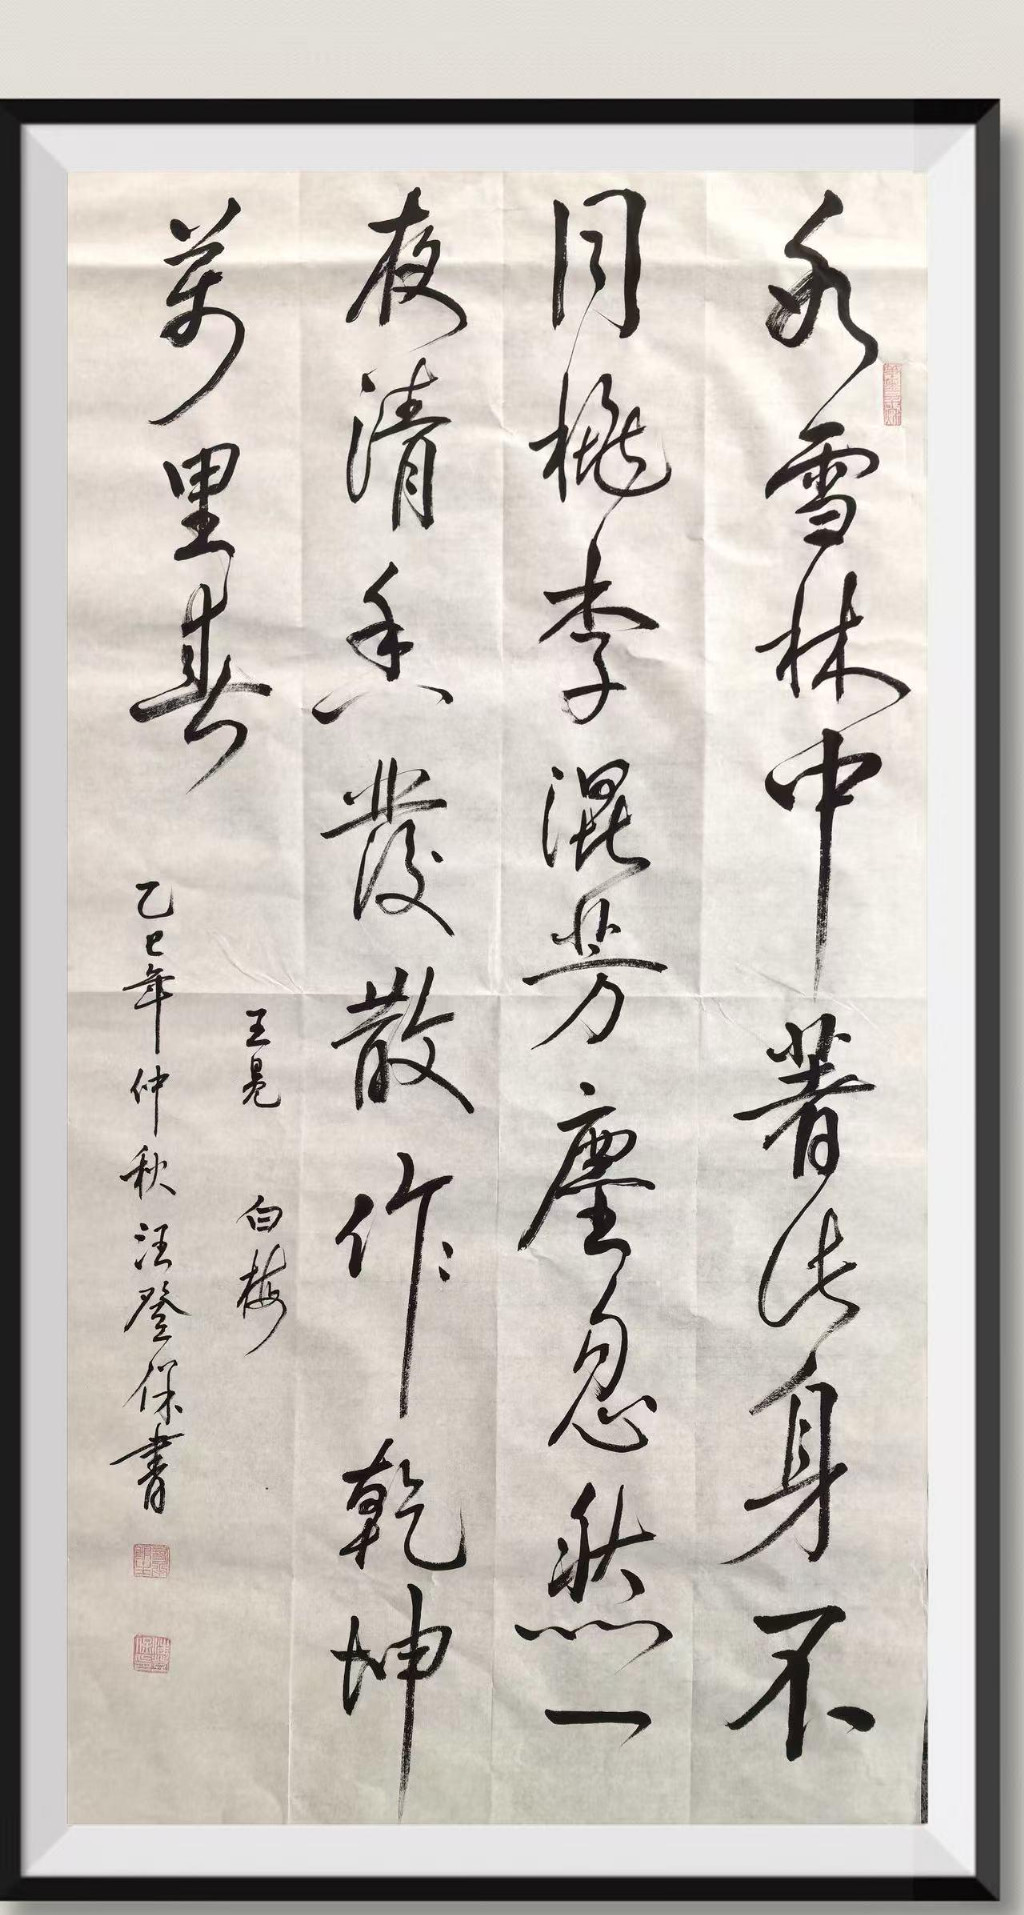 氷雪林中著此身不
同桃李混芳塵忽然一
夜清香發散作乾坤
萬里春
王冕 白梅
乙巳年仲秋汪登保書